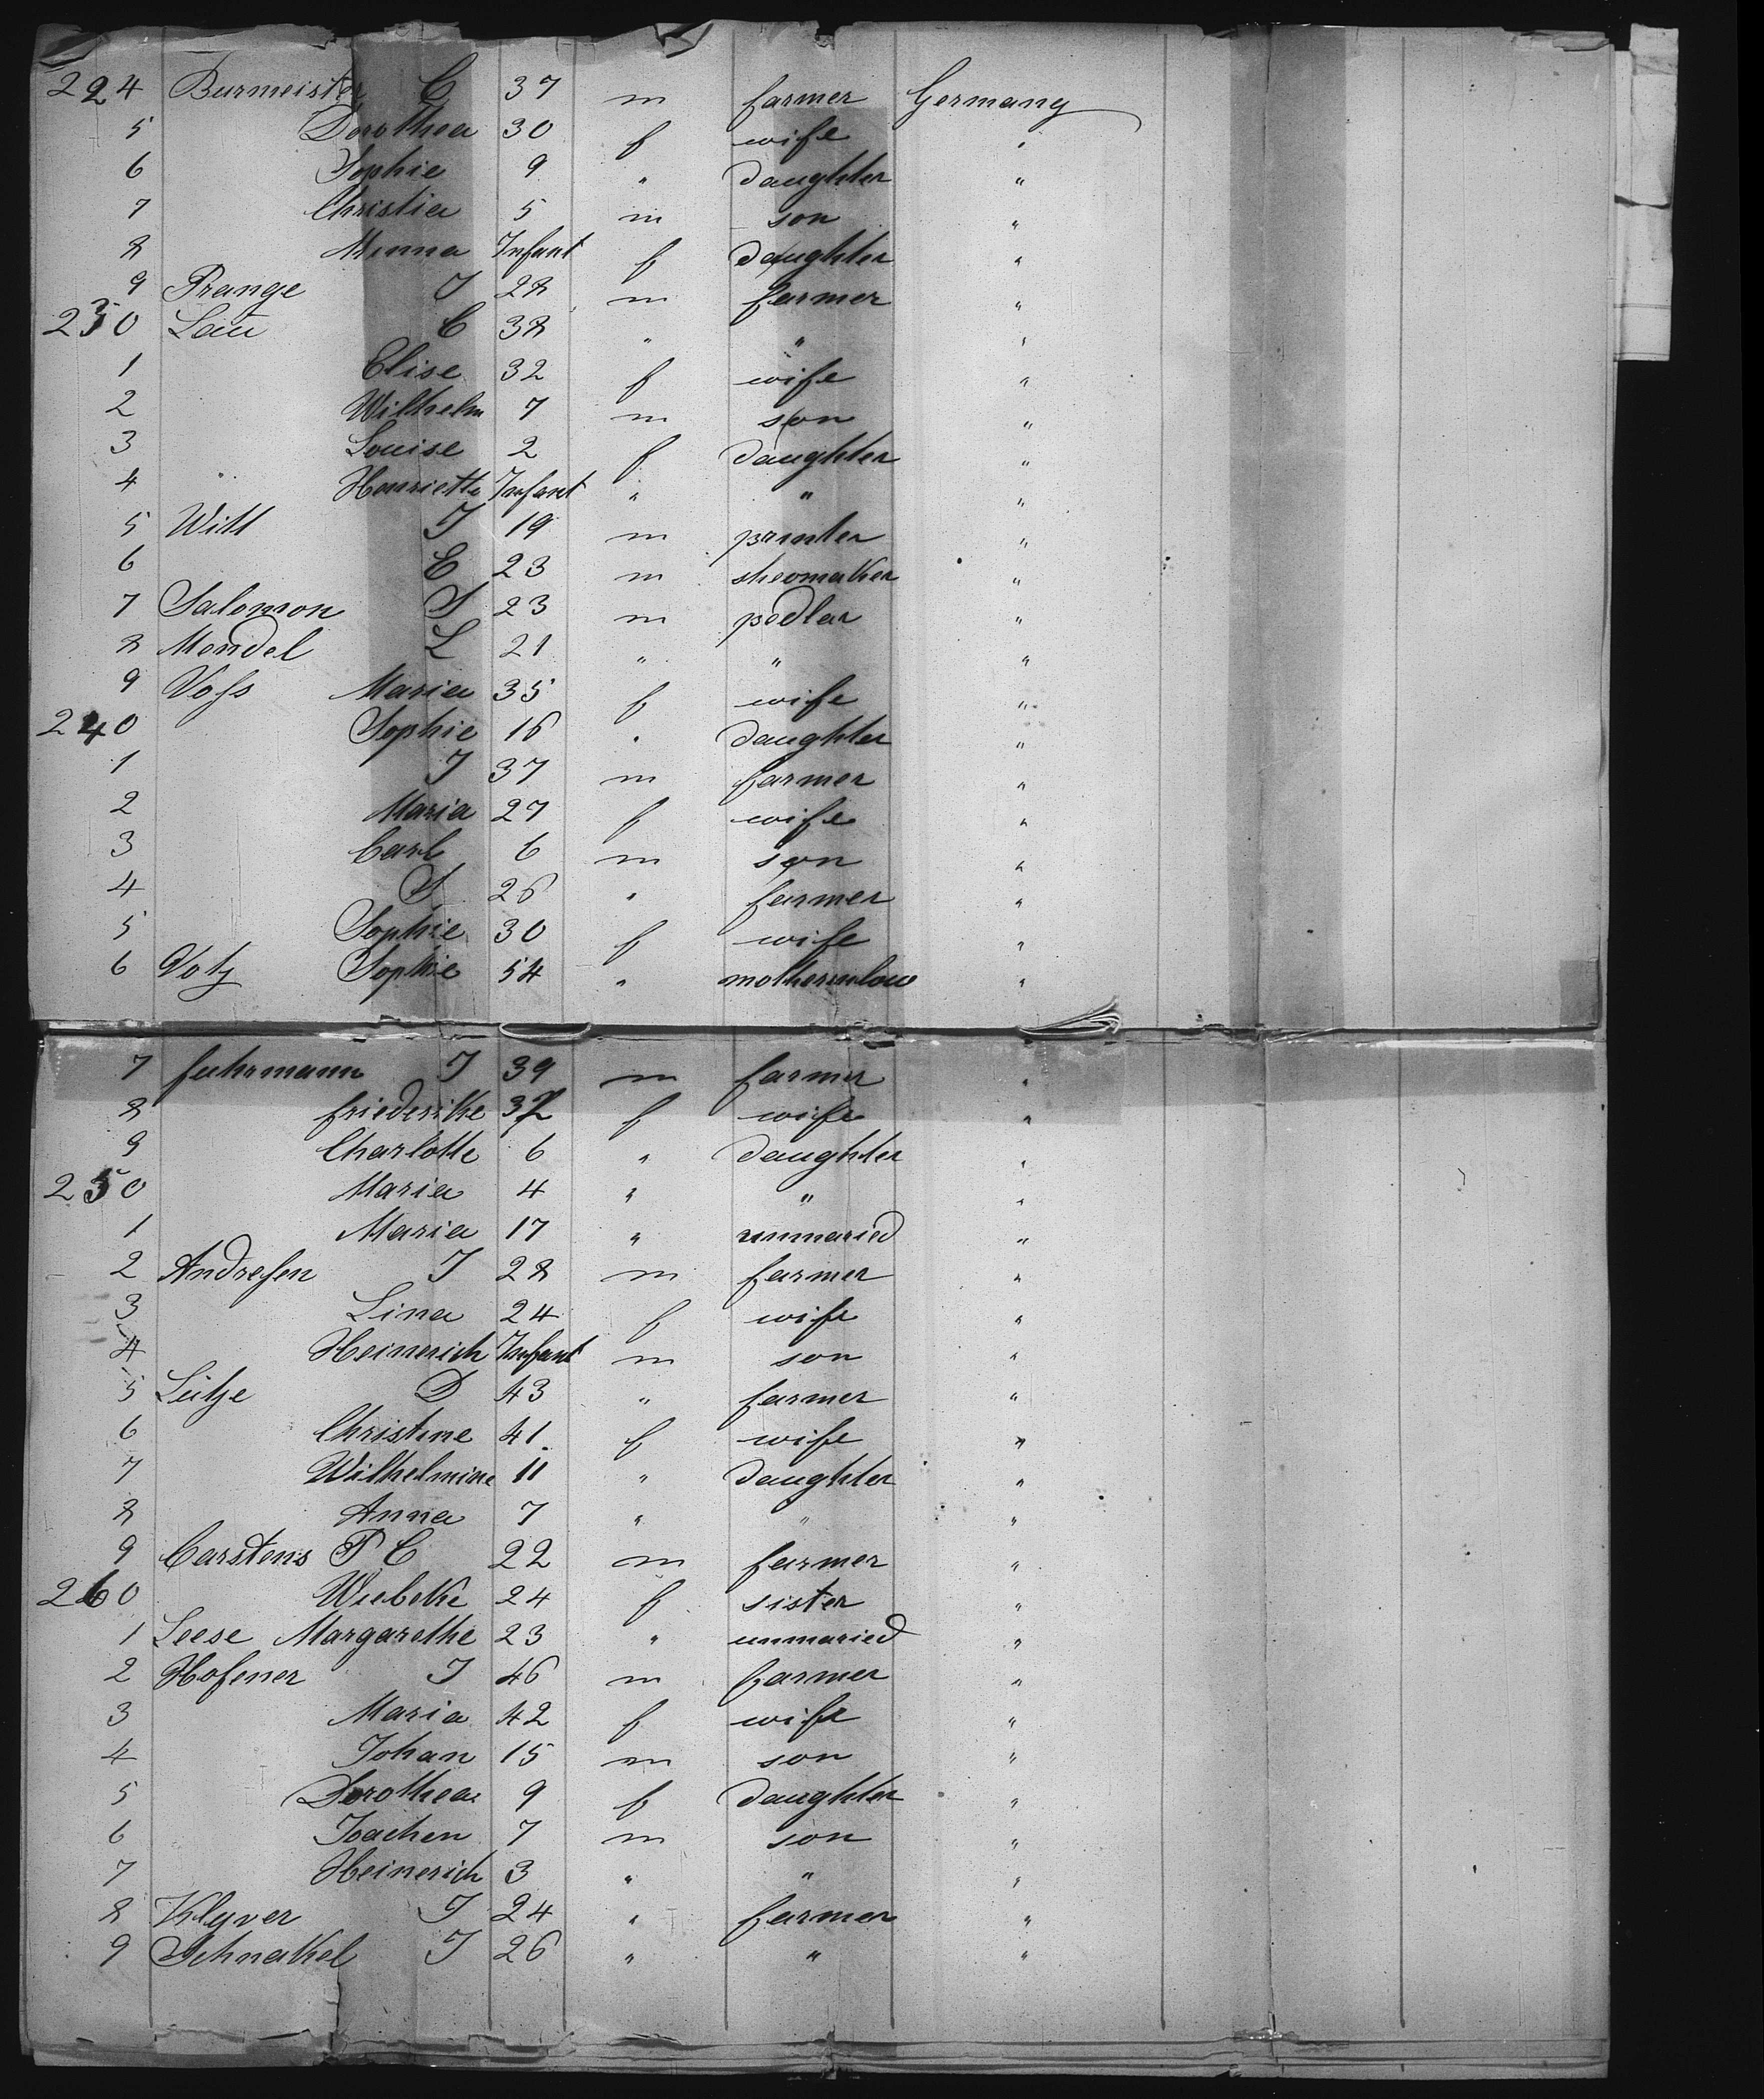 224 Burmeister C 37 m farmer Germany
5 Dorothea 30 f wife "
6 Sophie 9 " daughter "
7 Christia 5 m son "
8 Minna Infant f daughter "
9 Prange J 28 m farmer "
230 Lau C 38 " " "
1 Elise 32 f wife "
2 Wilhelm 7 m son "
3 Louise 2 f daughter "
4 " Henriette Infant " " "
5 Witt J 19 m printer "
6 C 23 m sheomaker "
7 Salomon S 23 m pedlar "
8 Mendel L 21 " " "
9 Voſs Maria 35 f wife "
240 Sophie 16 " daughter "
1 J 37 m farmer "
2 Maria 27 f wife "
3 Carl 6 m son "
4 S 26 " farmer "
5 Sophie 30 f wife "
6 Votz Sophie 54 " motherinlow "
7 fuhrmann J 39 m farmer "
8 friederike 32 f wife "
9 Charlotte 6 " daughter "
250 Maria 4 " " "
1 Maria 17 " unmaried "
2 Andreſen J 28 m farmer "
3 Lina 24 f wife "
4 Heinerich Infant m son "
5 Lütje D 43 " farmer "
6 Christine 41 f wife "
7 Wilhelmine 11 " daughter "
8 Anna 7 " " "
9 Carstens P C 22 m farmer "
260 Wiebeke 24 f sister "
1 Leese Margarethe 23 " unmaried "
2 Hofener J 46 m farmer "
3 Maria 42 f wife "
4 Johan 15 m son "
5 Dorothea 9 f daughter "
6 Joachen 7 m son "
7 Heinerich 3 " " "
8 Klyver J 24 " farmer "
9 Schnakel J 26 " " "